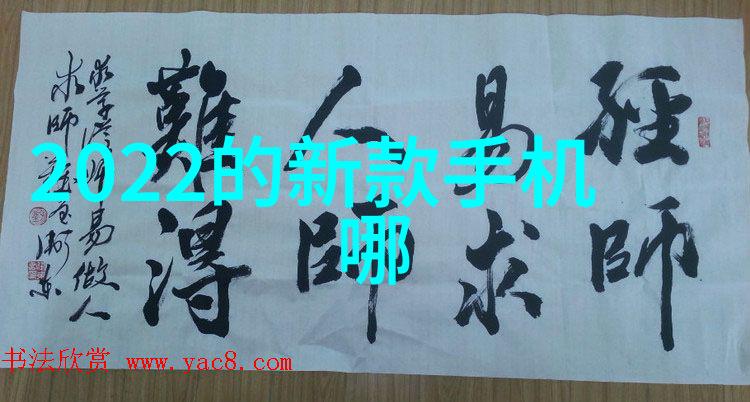 經師
易求
人師
難得
易做人
求師
2022的新款手机
哪
书法欣赏 www.yac8.com